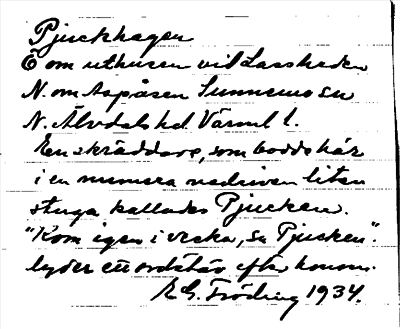 Pjuckhagen
Ö om uthusen vid Lassheden
N. om Aspåsen Sunnemo sn
N. Älvdals hd. Värml l.
En skräddare, som bodde här
i en numera nedriven liten
stuga kallades Pjucken.
"Kom igen i veska, sa Pjucken".
lyder ett ordstäv efter honom.
E. G. Fröding 1934.